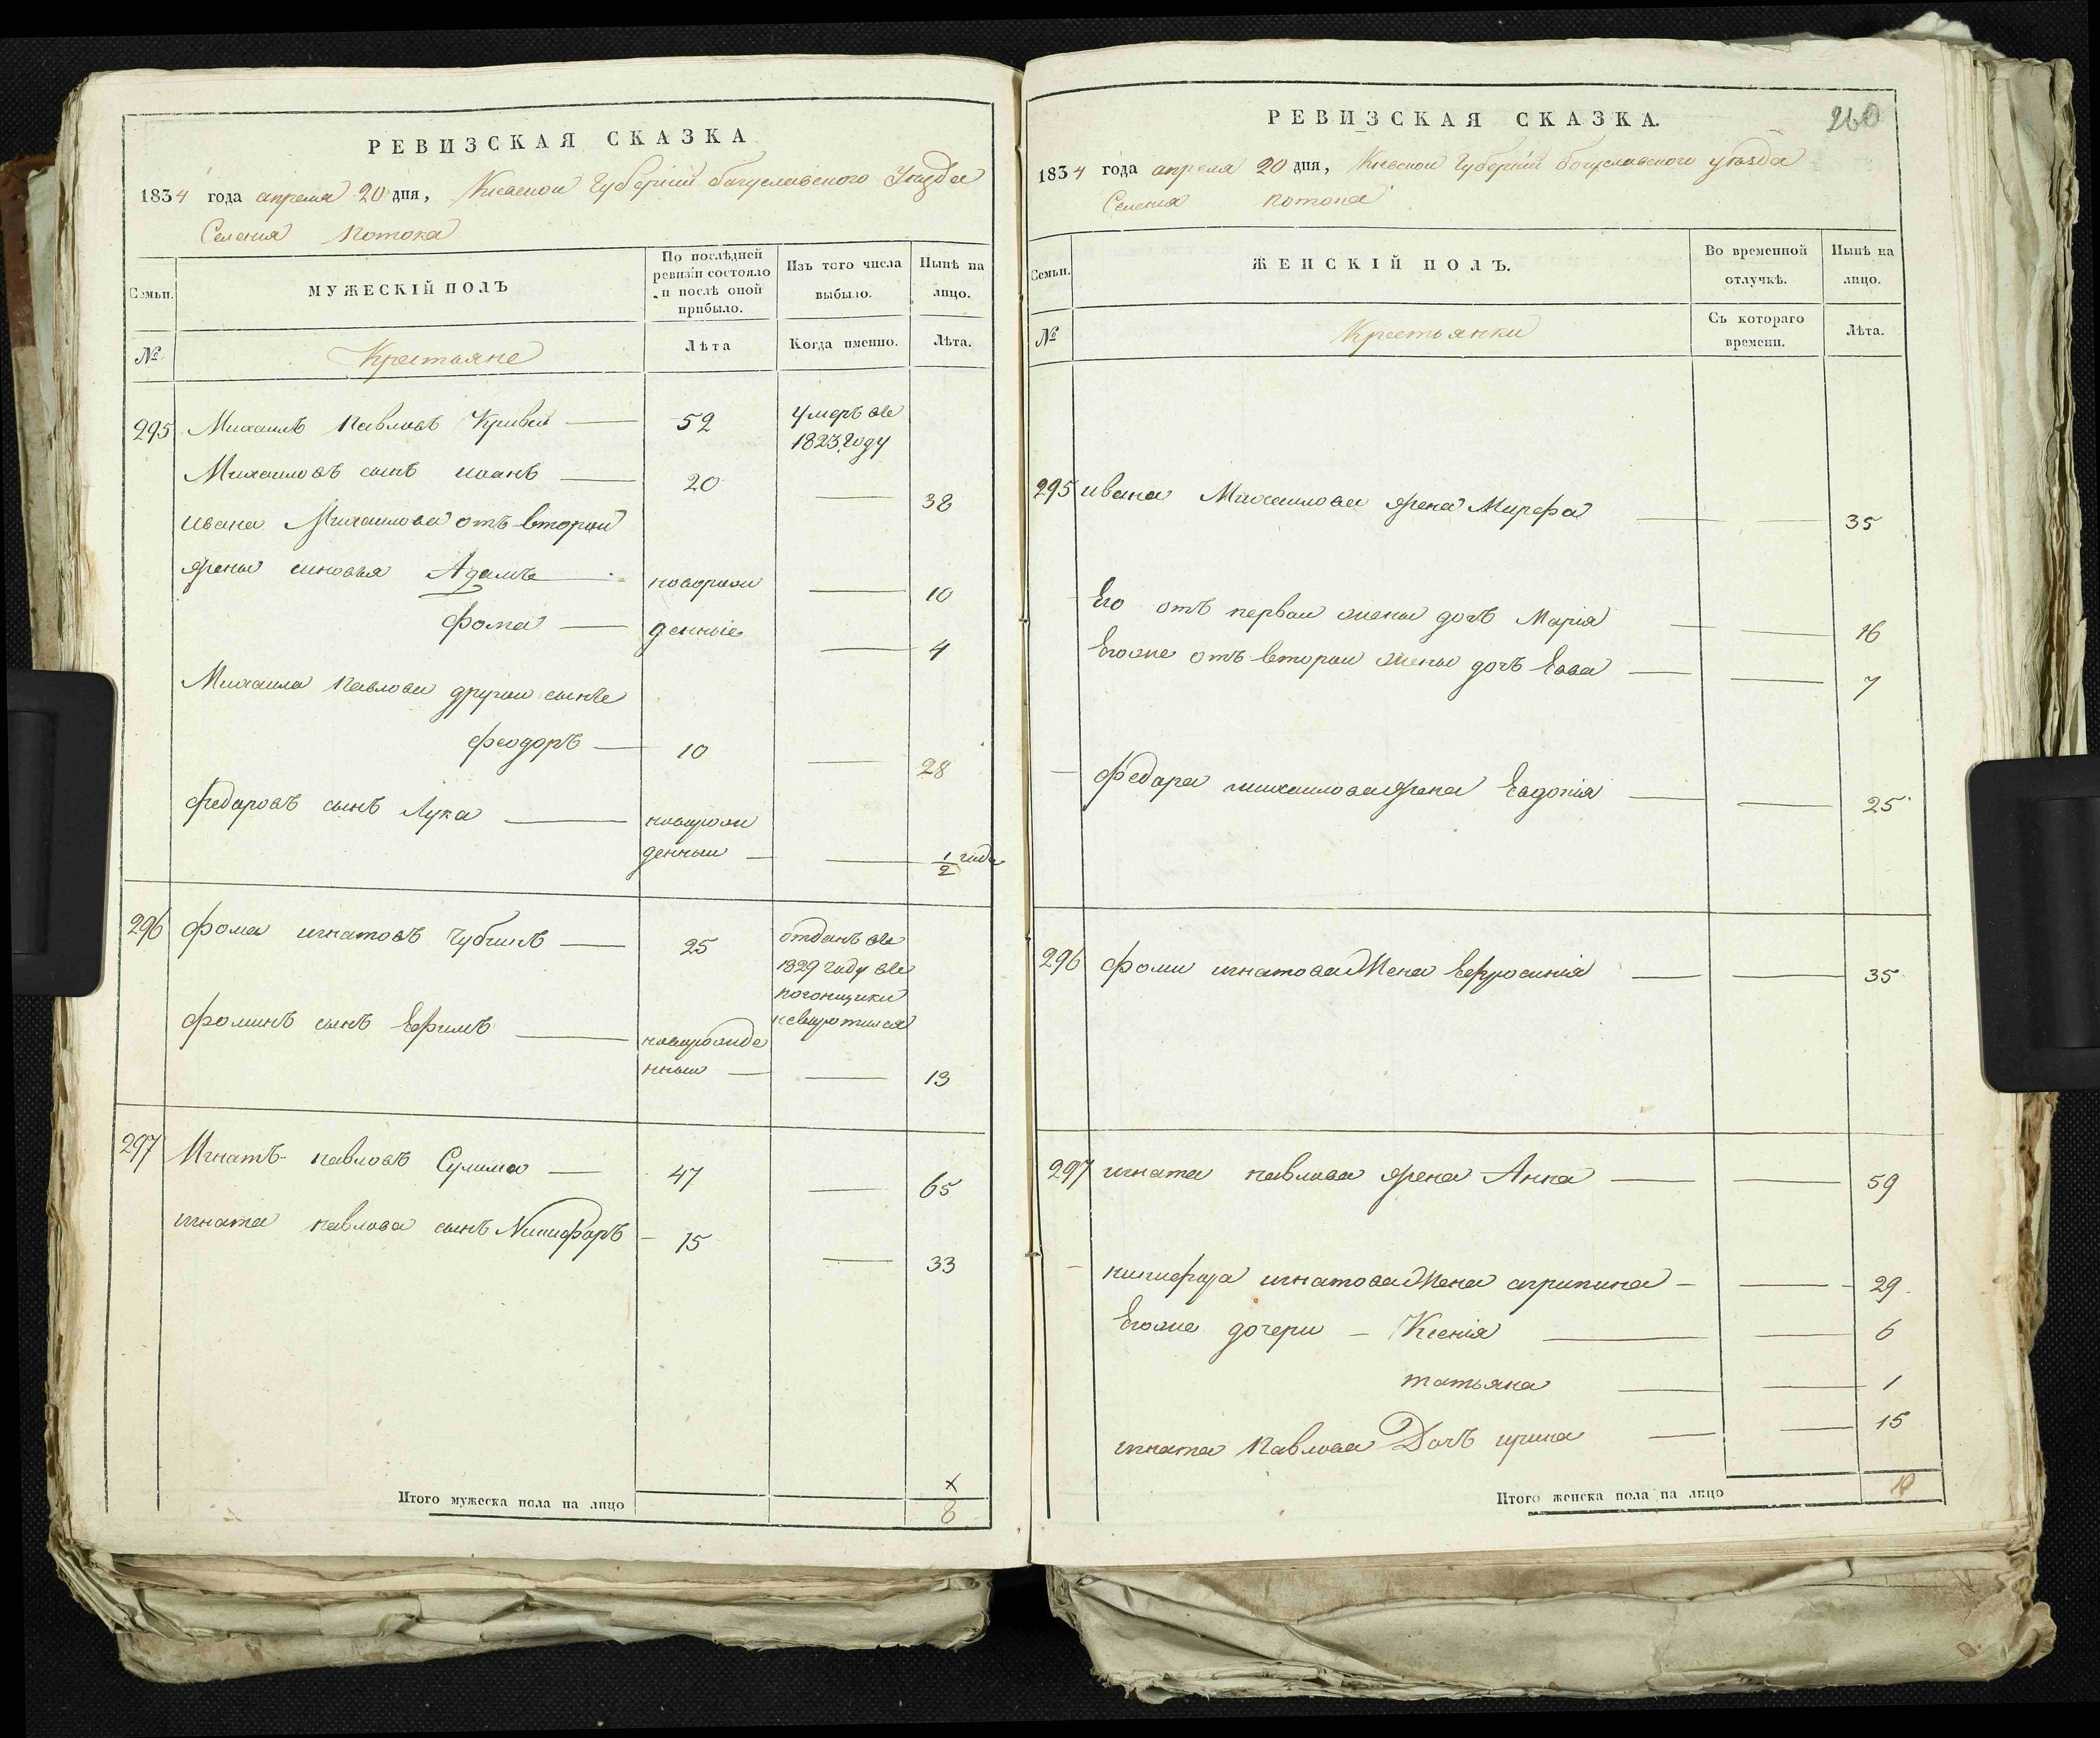 РЕВИЗСКАЯ СКАЗКА
1834 года апреля 20 дня, Киевской Губерніи богуславского Уѣзда
Селения Потока
Семьи.
МУЖЕСКІЙ ПОЛЪ
По послѣдней ревизіи состояло и послѣ оной прибыло.
Изъ того числа выбыло.
Нынѣ на лицо.
№
Крестьяне
Лѣта
Когда именно.
Лѣта.
295 Михаилъ Павловъ Кривой — 52 умеръ въ
1823 году
Михаиловъ сынъ иванъ — 20 — 38
ивана Михаилова отъ второй
жены синовья Адамъ — новорож — 10
фома — денные — 4
Михаила Павлова другой сынъ
феодоръ — 10 — 28
федаровъ сынъ Лука — новорож
денный — — 1/2 года
296 фома игнатовъ — 25 отданъ въ
1829 году въ
погонщики
неворотился
фоминъ сынъ Ефимъ — новорожде
нный — — 13
297 Игнатъ павловъ Сулима — 47 — 65
игната павлова сынъ Никифаръ — 15 — 33
Итого мужеска пола на лицо
x
8
РЕВИЗСКАЯ СКАЗКА.
260
1834 года апреля 20 дня, Киевской Губерніи богуславского уѣзда
Селения Потока
Семьи.
ЖЕНСКІЙ ПОЛЪ.
Во временной отлучкѣ.
Нынѣ на лицо.
№
Крестьянки
Съ котораго времени.
Лѣта.
295 ивана Михаилова жена Марфа — — 35
Его отъ первой жены дочъ Марія — — 16
Егоже отъ второй жены дочъ Евва — — 7
— федара михаилова жена Евдокія — — 25
296 фоми игнатова Жена Ефросинія — — 35
297 игната павлова жена Анна — — 59
— никифора игнатова Жена агрипина — — 29
Егоже дочери — Ксенія — — 6
татьяна — — 1
игната Павлова Дочъ ирина — — 15
Итого женска пола на лицо
10